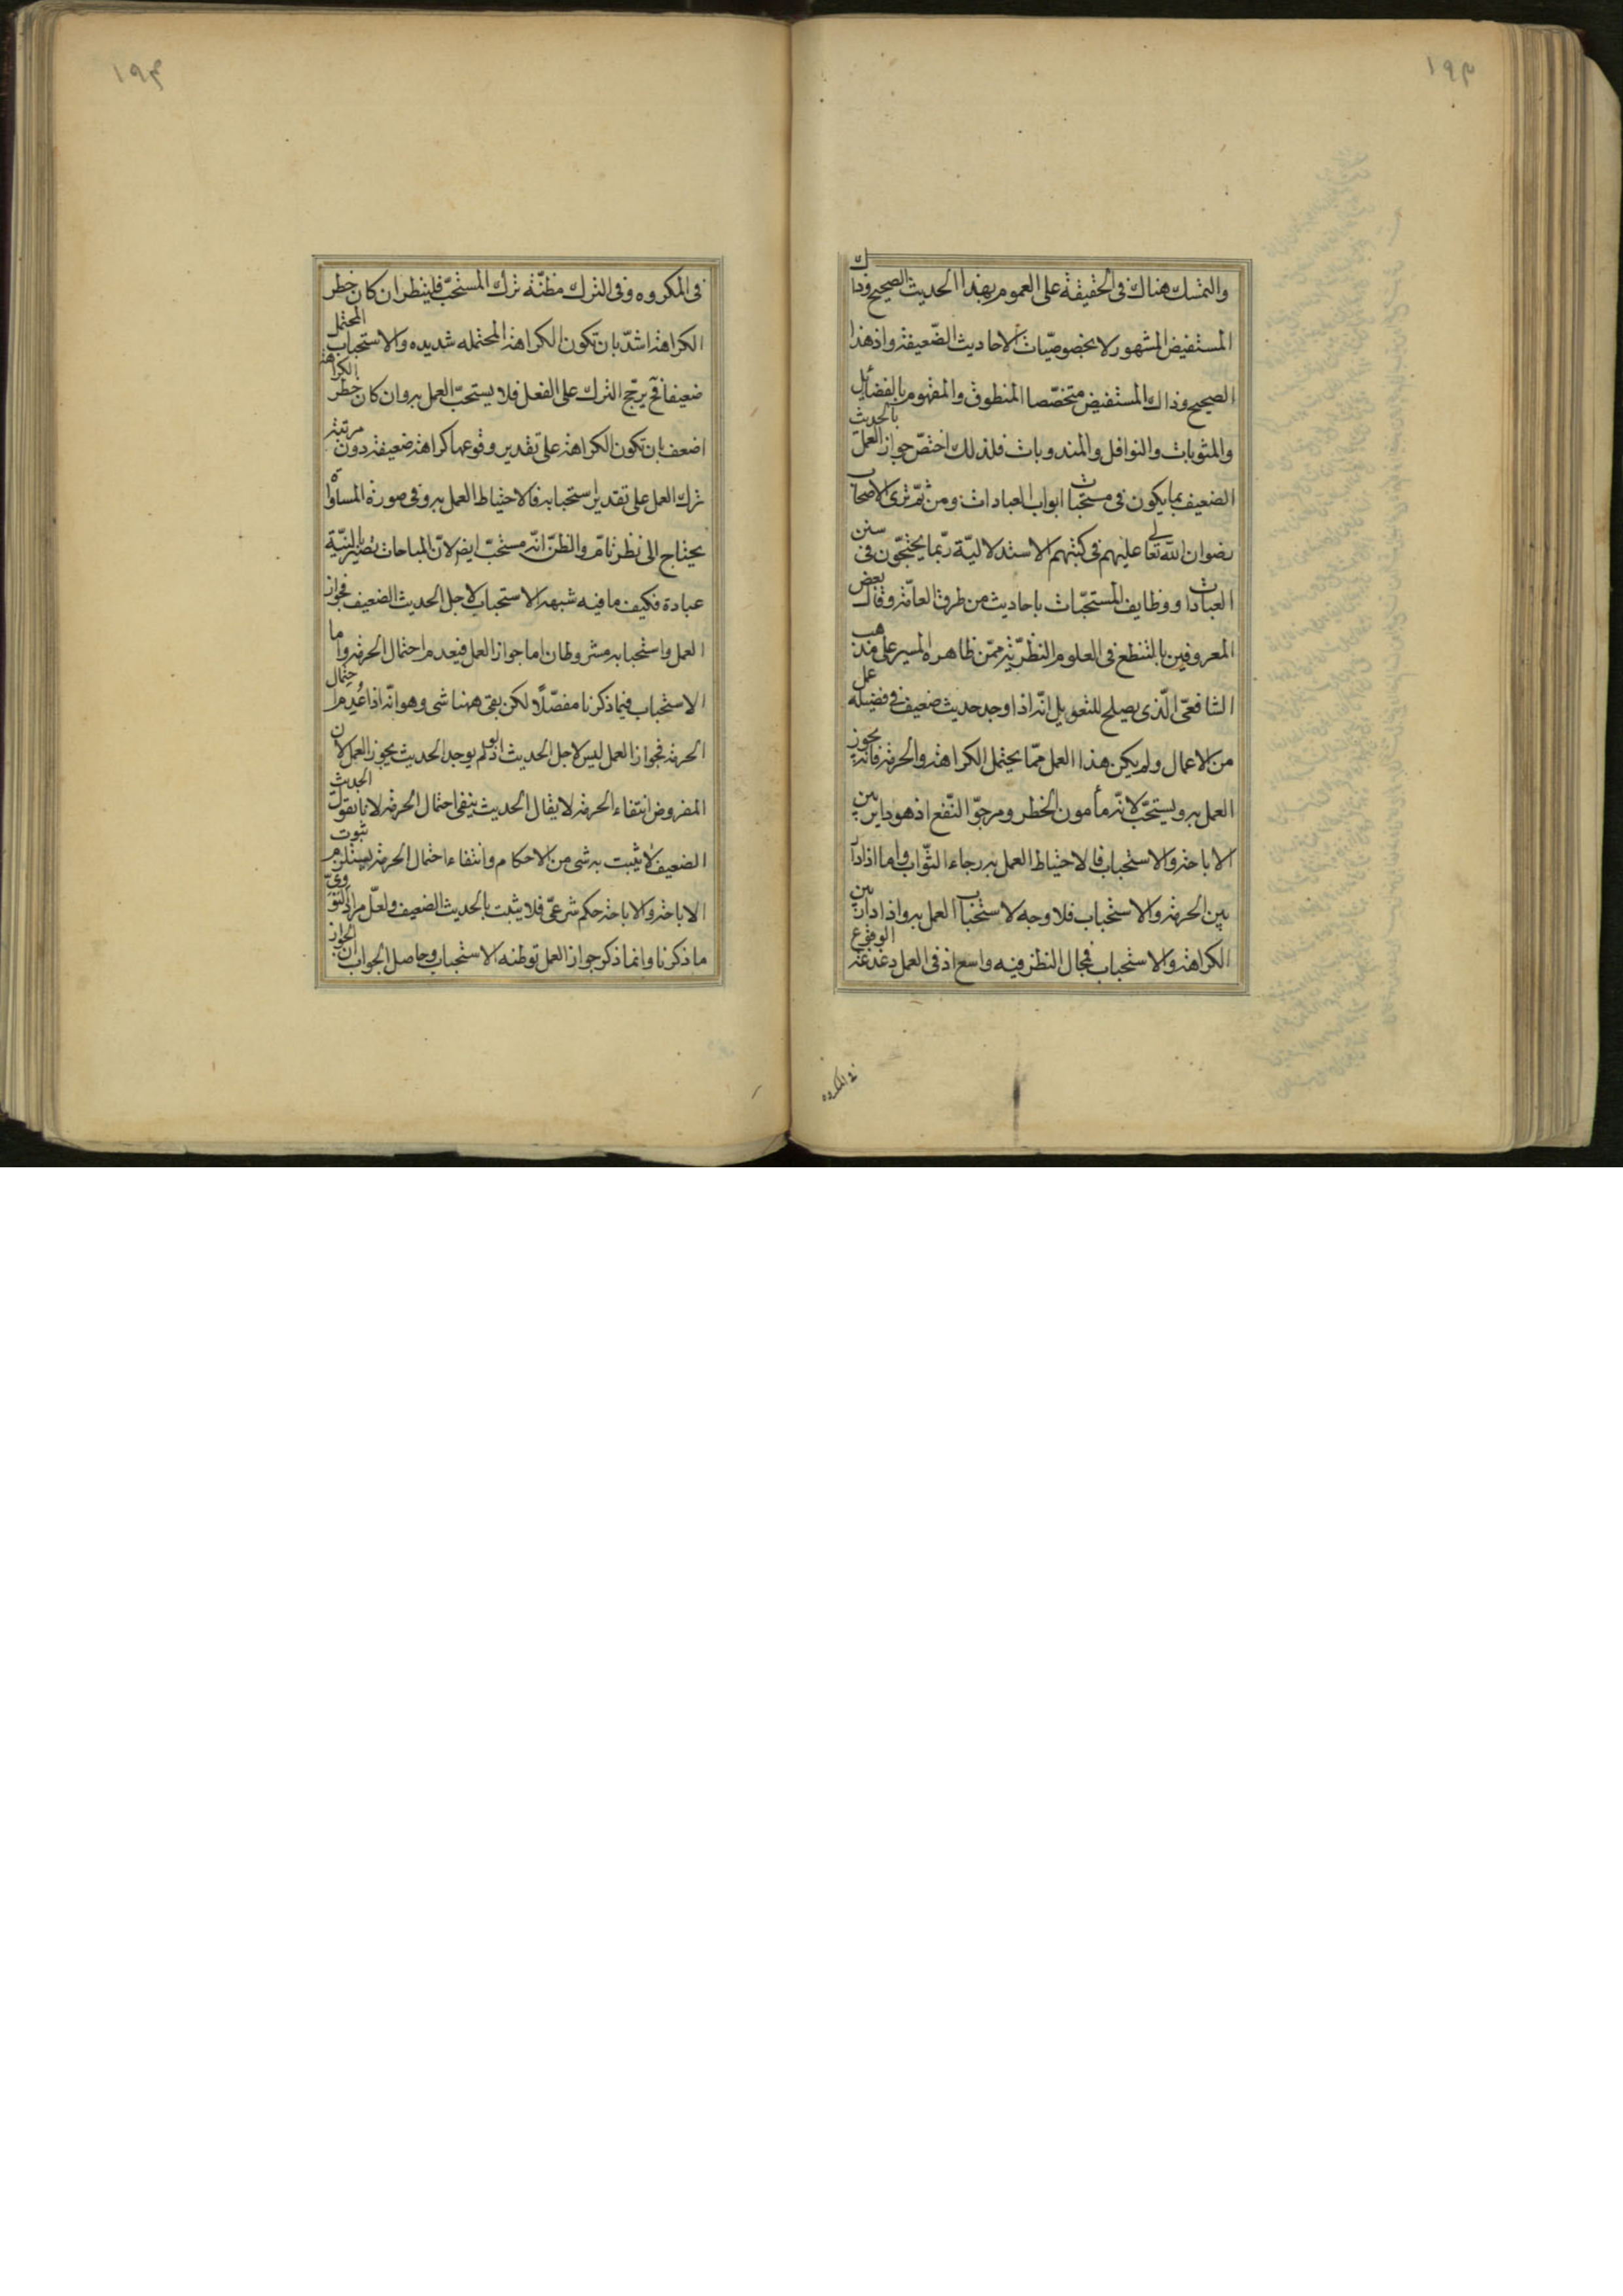 ١٩٣
والتمسك هناك فى الحقيقة على العموم بهذا الحديث الصحيح وذاك
المستفيض المشهور لا بخصوصيّات الاحاديث الضّعيفة واذ هذا
الصحيح وذاك المستفيض متخصّصا المنطوق والمفهوم بالفضائل
والمثوبات والنوافل والمندوبات فلذلك اختصّ جواز العمل بالحديث
الضعيف بما يكون فى مستحبات ابواب العبادات ومن ثمّ ترى الاصحاب
رضوان الله تعالى عليهم فى كتبهم الاستدلاليّة ربّما يحتجّون فى سنن
العبادات ووظايف المستحبّات باحاديث من طرق العامّة وقال بعض
المعروفين بالتنطع فى العلوم النظريّة ممّن ظاهره المسير على مذهب
الشافعىّ الّذى يصلح للتعويل انّه اذا وجد حديث ضعيف فى فضيلة عمل
من الاعمال ولم يكن هذا العمل ممّا يحتمل الكراهة والحرمة فانّه يجوز
العمل به ويستحبّ لانّه مأمون الخطر ومرجوّ النّفع اذ هو داير بين
الاباحة والاستحباب فالاحتياط العمل به رجاء الثّواب واما اذا دار
بين الحرمة والاستحباب فلا وجه لاستحباب العمل به واذا دار بين
الكراهة والاستحباب فمجال النظر فيه واسع اذ فى العمل دغدغة الوقوع
فى المكروه
١٩٤
فى المكروه وفى الترك مظنّة ترك المستحبّ فلينظر ان كان خطر
الكراهة اشدّ بان تكون الكراهة المحتمله شديده والاستحباب المحتمل
ضعيفا فح يرجّح الترك على الفعل فلا يستحبّ العمل به وان كان خطر الكراهة
اضعف بان تكون الكراهة على تقدير وقوعها كراهة ضعيفة دون مرتبة
ترك العمل على تقدير استحبابه فالاحتياط العمل به وفى صورة المساواة
يحتاج الى نظر تامّ والظنّ انّه مستحبّ ايضا لانّ المباحات تصير بالنيّة
عبادة فكيف ما فيه شبهة الاستحباب لاجل الحديث الضعيف فجواز
العمل واستحبابه مشروطان اما جواز العمل فبعدم احتمال الحرمة واما
الاستحباب فيما ذكرنا مفصّلًا لكن بقى ههنا شى وهو انّه اذا عُدِم احتمال
الحرمة فجواز العمل ليس لاجل الحديث اذ لو لم يوجد الحديث يجوز العمل لان
المفروض انتفاء الحرمة لا يقال الحديث ينفى احتمال الحرمة لانا نقول الحديث
الضعيف لا يثبت به شى من الاحكام وانتفاء احتمال الحرمة يستلزم ثبوت
الاباحة والاباحة حكم شرعىّ فلا يثبت بالحديث الضعيف ولعلّ مراد النووىّ
ما ذكرنا وانما ذكر جواز العمل توطئة الاستحباب وحاصل الجواب ان الجواز